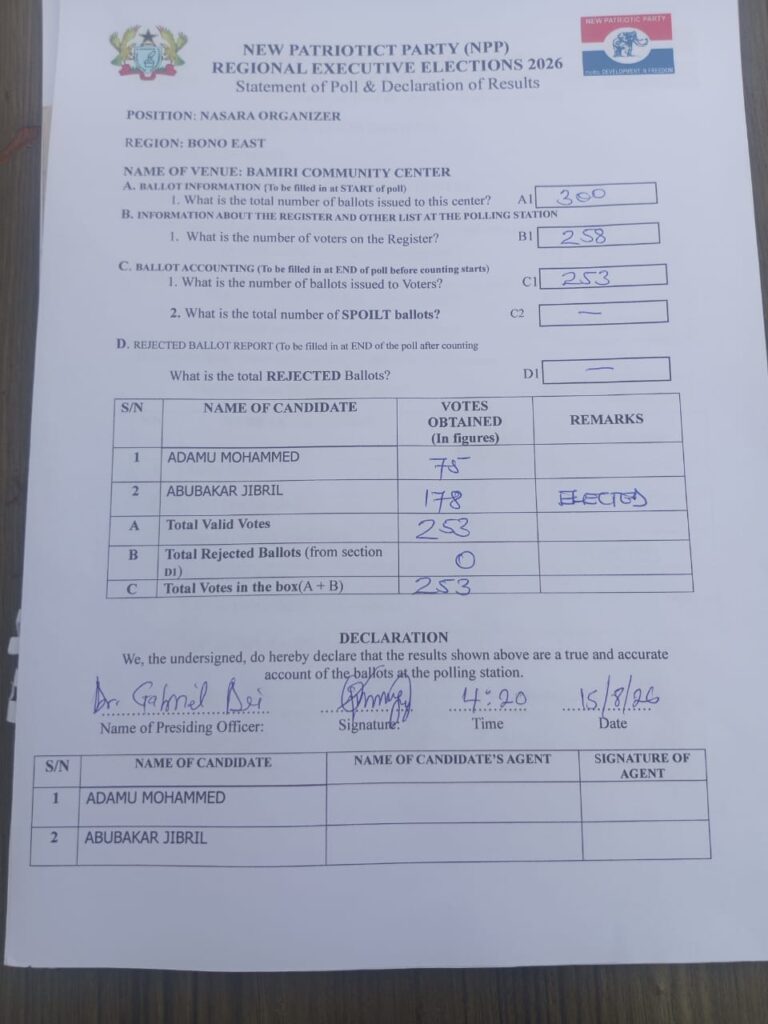 NEW PATRIOTICT PARTY (NPP)
REGIONAL EXECUTIVE ELECTIONS 2026
Statement of Poll & Declaration of Results
NEW PATRIOTIC PARTY
DEVELOPMENT IN FREEDOM
POSITION: NASARA ORGANIZER
REGION: BONO EAST
NAME OF VENUE: BAMIRI COMMUNITY CENTER
A. BALLOT INFORMATION (To be filled in at START of poll)
1. What is the total number of ballots issued to this center? A1 300
B. INFORMATION ABOUT THE REGISTER AND OTHER LIST AT THE POLLING STATION
1. What is the number of voters on the Register? B1 258
C. BALLOT ACCOUNTING (To be filled in at END of poll before counting starts)
1. What is the number of ballots issued to Voters? C1 253
2. What is the total number of SPOILT ballots? C2 —
D. REJECTED BALLOT REPORT (To be filled in at END of the poll after counting
What is the total REJECTED Ballots? D1 —
S/N NAME OF CANDIDATE VOTES OBTAINED (In figures) REMARKS
1 ADAMU MOHAMMED 75
2 ABUBAKAR JIBRIL 178 ELECTED
A Total Valid Votes 253
B Total Rejected Ballots (from section D1) 0
C Total Votes in the box(A + B) 253
DECLARATION
We, the undersigned, do hereby declare that the results shown above are a true and accurate
account of the ballots at the polling station.
Dr. Gabriel Bei 4:20 15/8/26
Name of Presiding Officer: Signature: Time Date
S/N NAME OF CANDIDATE NAME OF CANDIDATE'S AGENT SIGNATURE OF AGENT
1 ADAMU MOHAMMED
2 ABUBAKAR JIBRIL